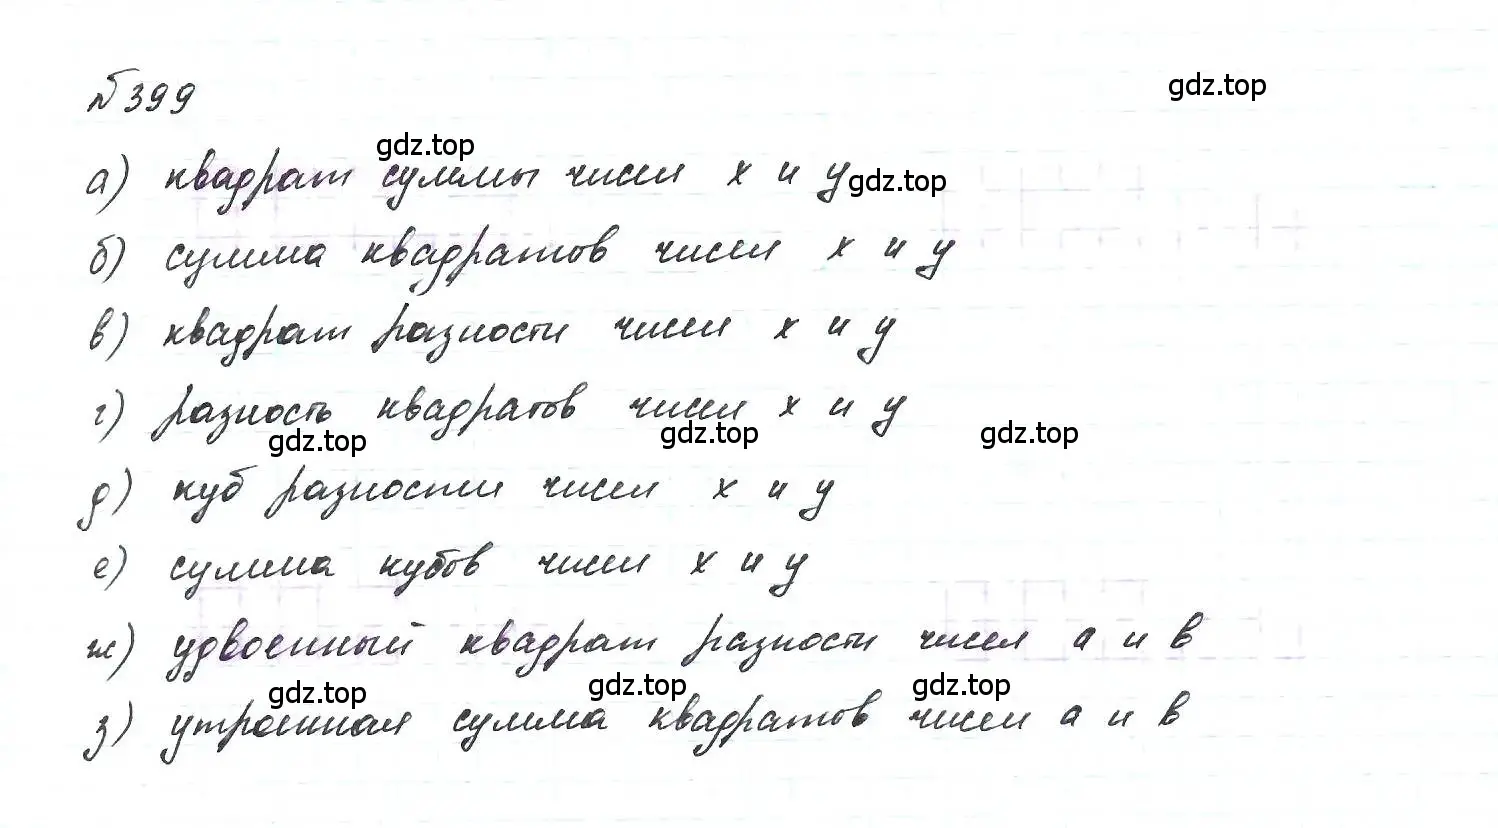 № 399
gdz.top
gdz.top
а) квадрат суммы чисел x и y
gdz.top
б) сумма квадратов чисел x и y
в) квадрат разности чисел x и y
г) разность квадратов чисел x и y
gdz.top gdz.top gdz.top
д) куб разности чисел x и y
е) сумма кубов чисел x и y
ж) удвоенный квадрат разности чисел a и b
gdz.top gdz.top gdz.top
з) утроенная сумма квадратов чисел a и b